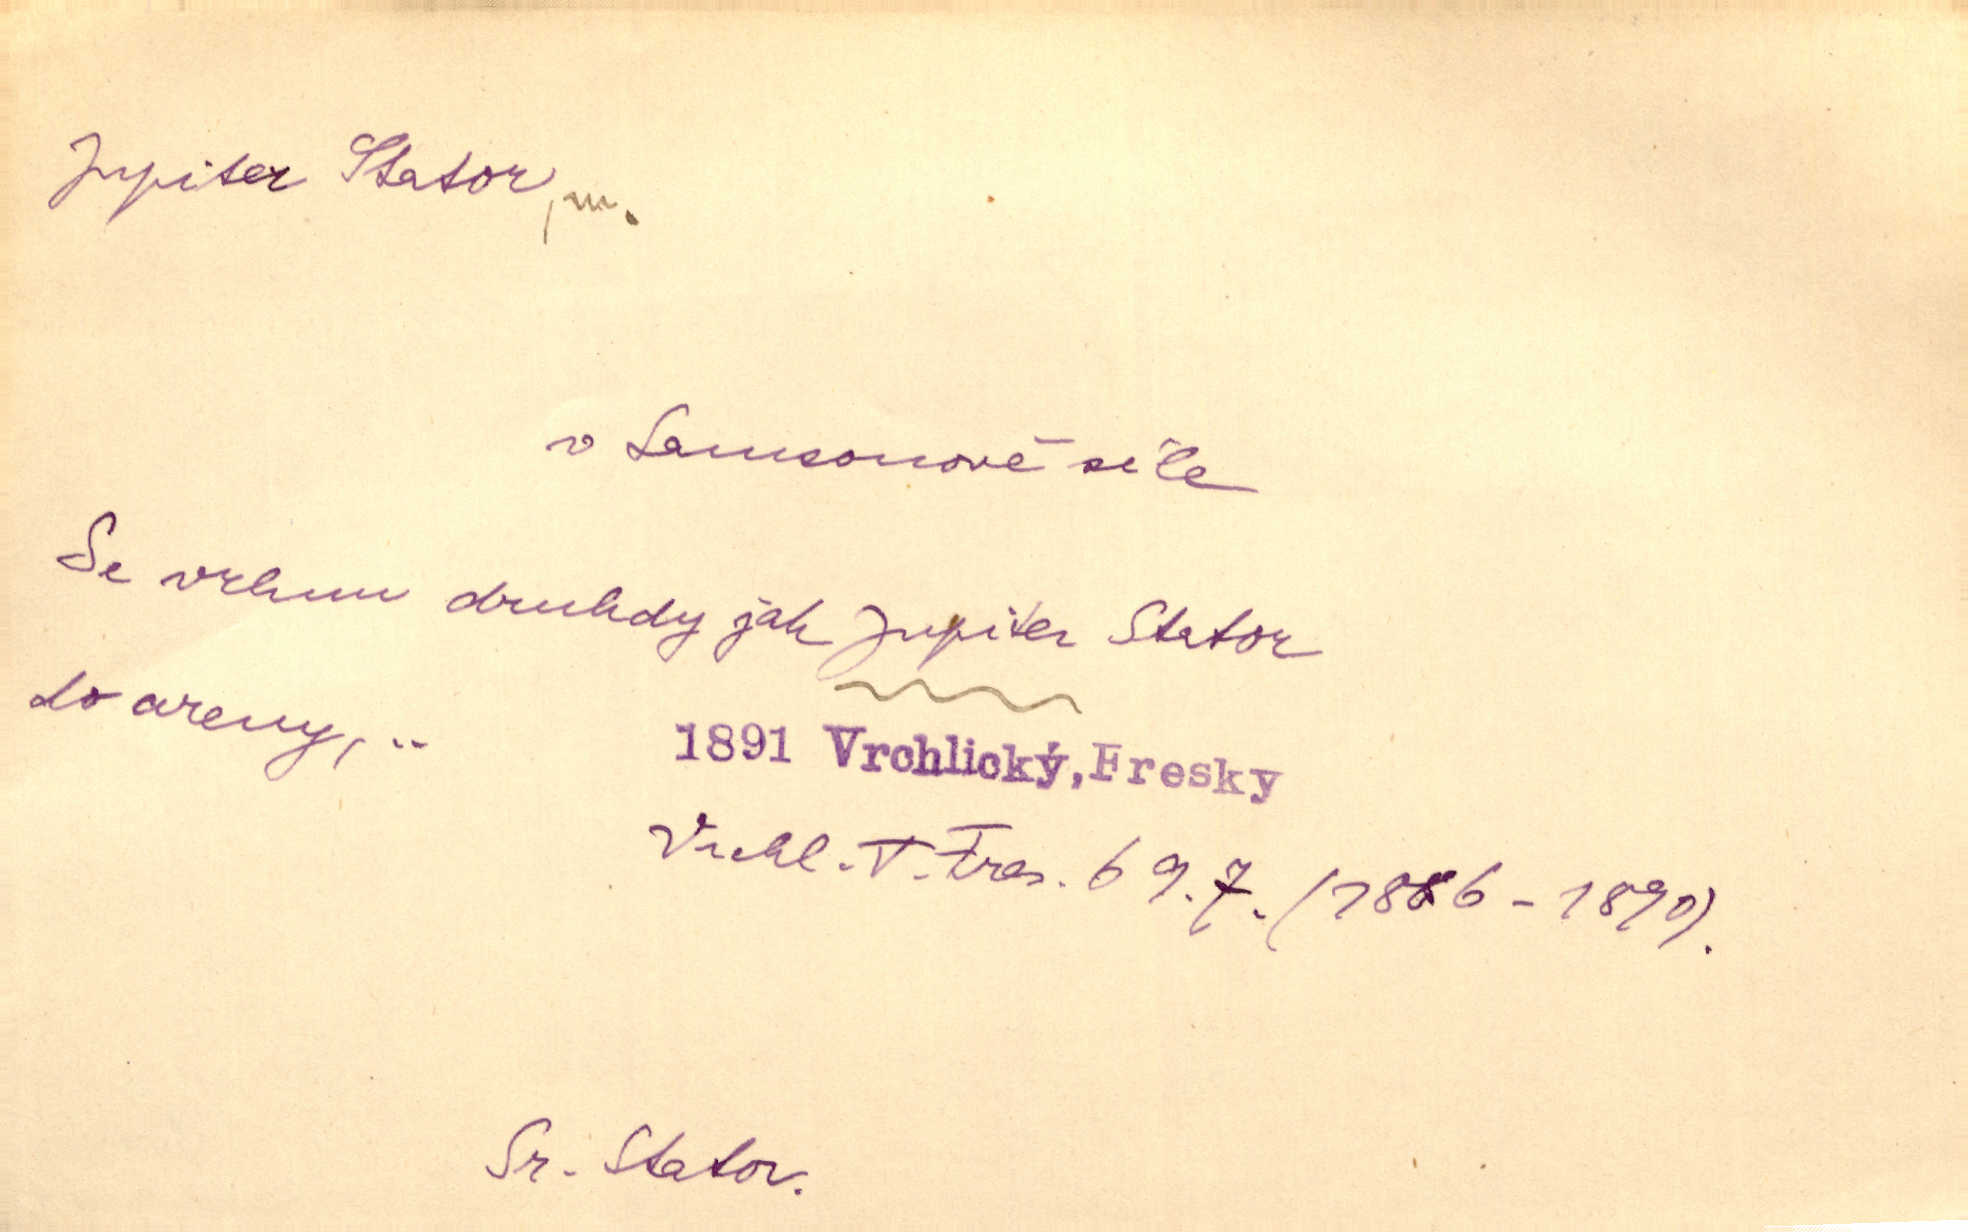 Jupiter Stator, m.
v Samsonově síle
Se vrhnu druhdy jak Jupiter Stator
do areny, ..
1891 Vrchlický, Fresky
Vrchl. V. Fres. 69.7. (1886-1890).
Sr. Stator.